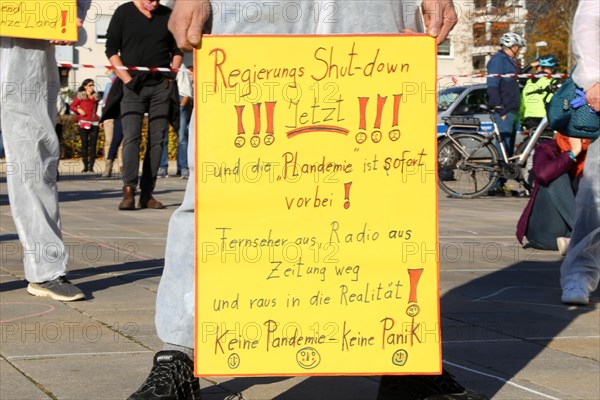 end !
nze Land !
Regierungs Shut-down
!!! Jetzt !!!
und die "Plandemie" ist sofort
vorbei !
Fernseher aus, Radio aus
Zeitung weg
und raus in die Realität !
Keine Pandemie - Keine Panik